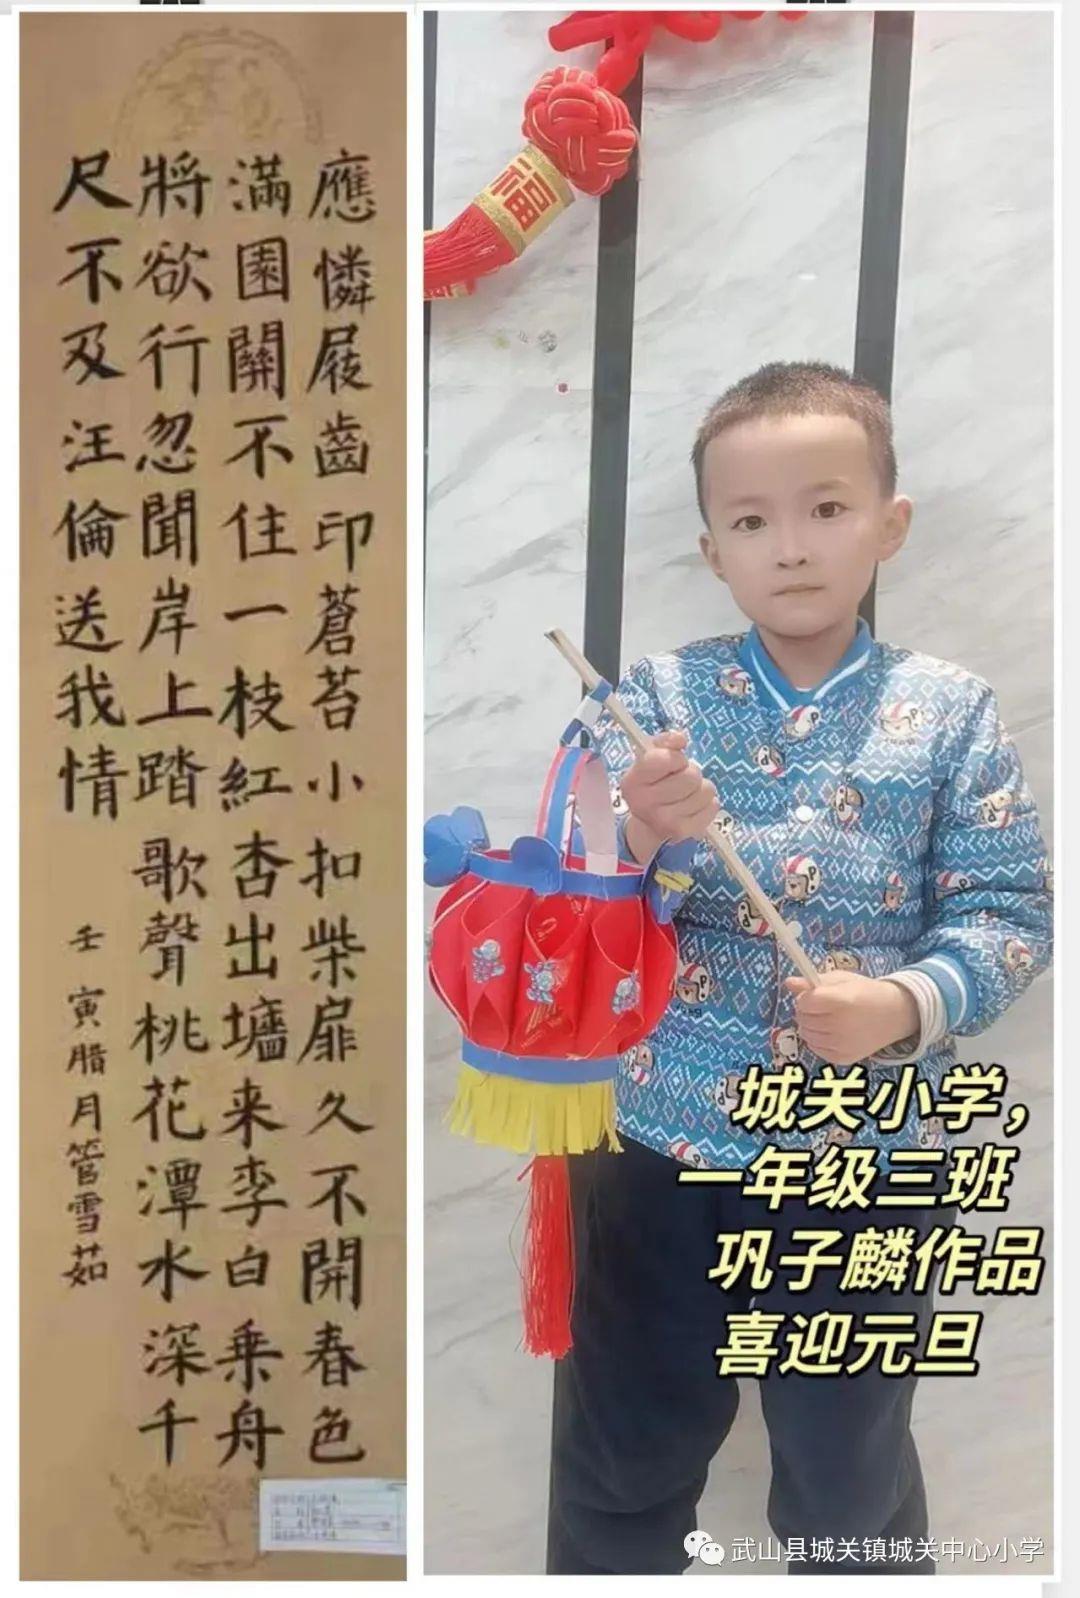 應憐屐齒印蒼苔小扣柴扉久不開春色
滿園關不住一枝紅杏出墻来李白乗舟
將欲行忽聞岸上踏歌聲桃花潭水深千
尺不及汪倫送我情
壬寅腊月管雪茹
福
城关小学，
一年级三班
巩子麟作品
喜迎元旦
武山县城关镇城关中心小学